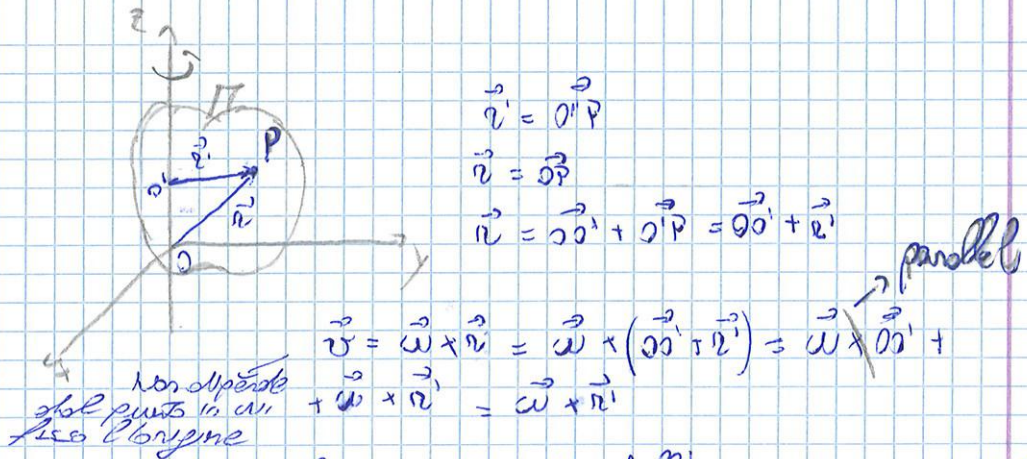 z
P
r⃗'
O'
r⃗
O
y
x
r⃗' = O'P⃗
r⃗ = OP⃗
r⃗ = OO⃗' + O'P⃗ = OO⃗' + r⃗'
parallel
v⃗ = ω⃗ × r⃗ = ω⃗ × (OO⃗' + r⃗') = ω⃗ × OO⃗' +
+ ω⃗ × r⃗' = ω⃗ × r⃗'
non dipende
dal punto in cui
fisso l'origine